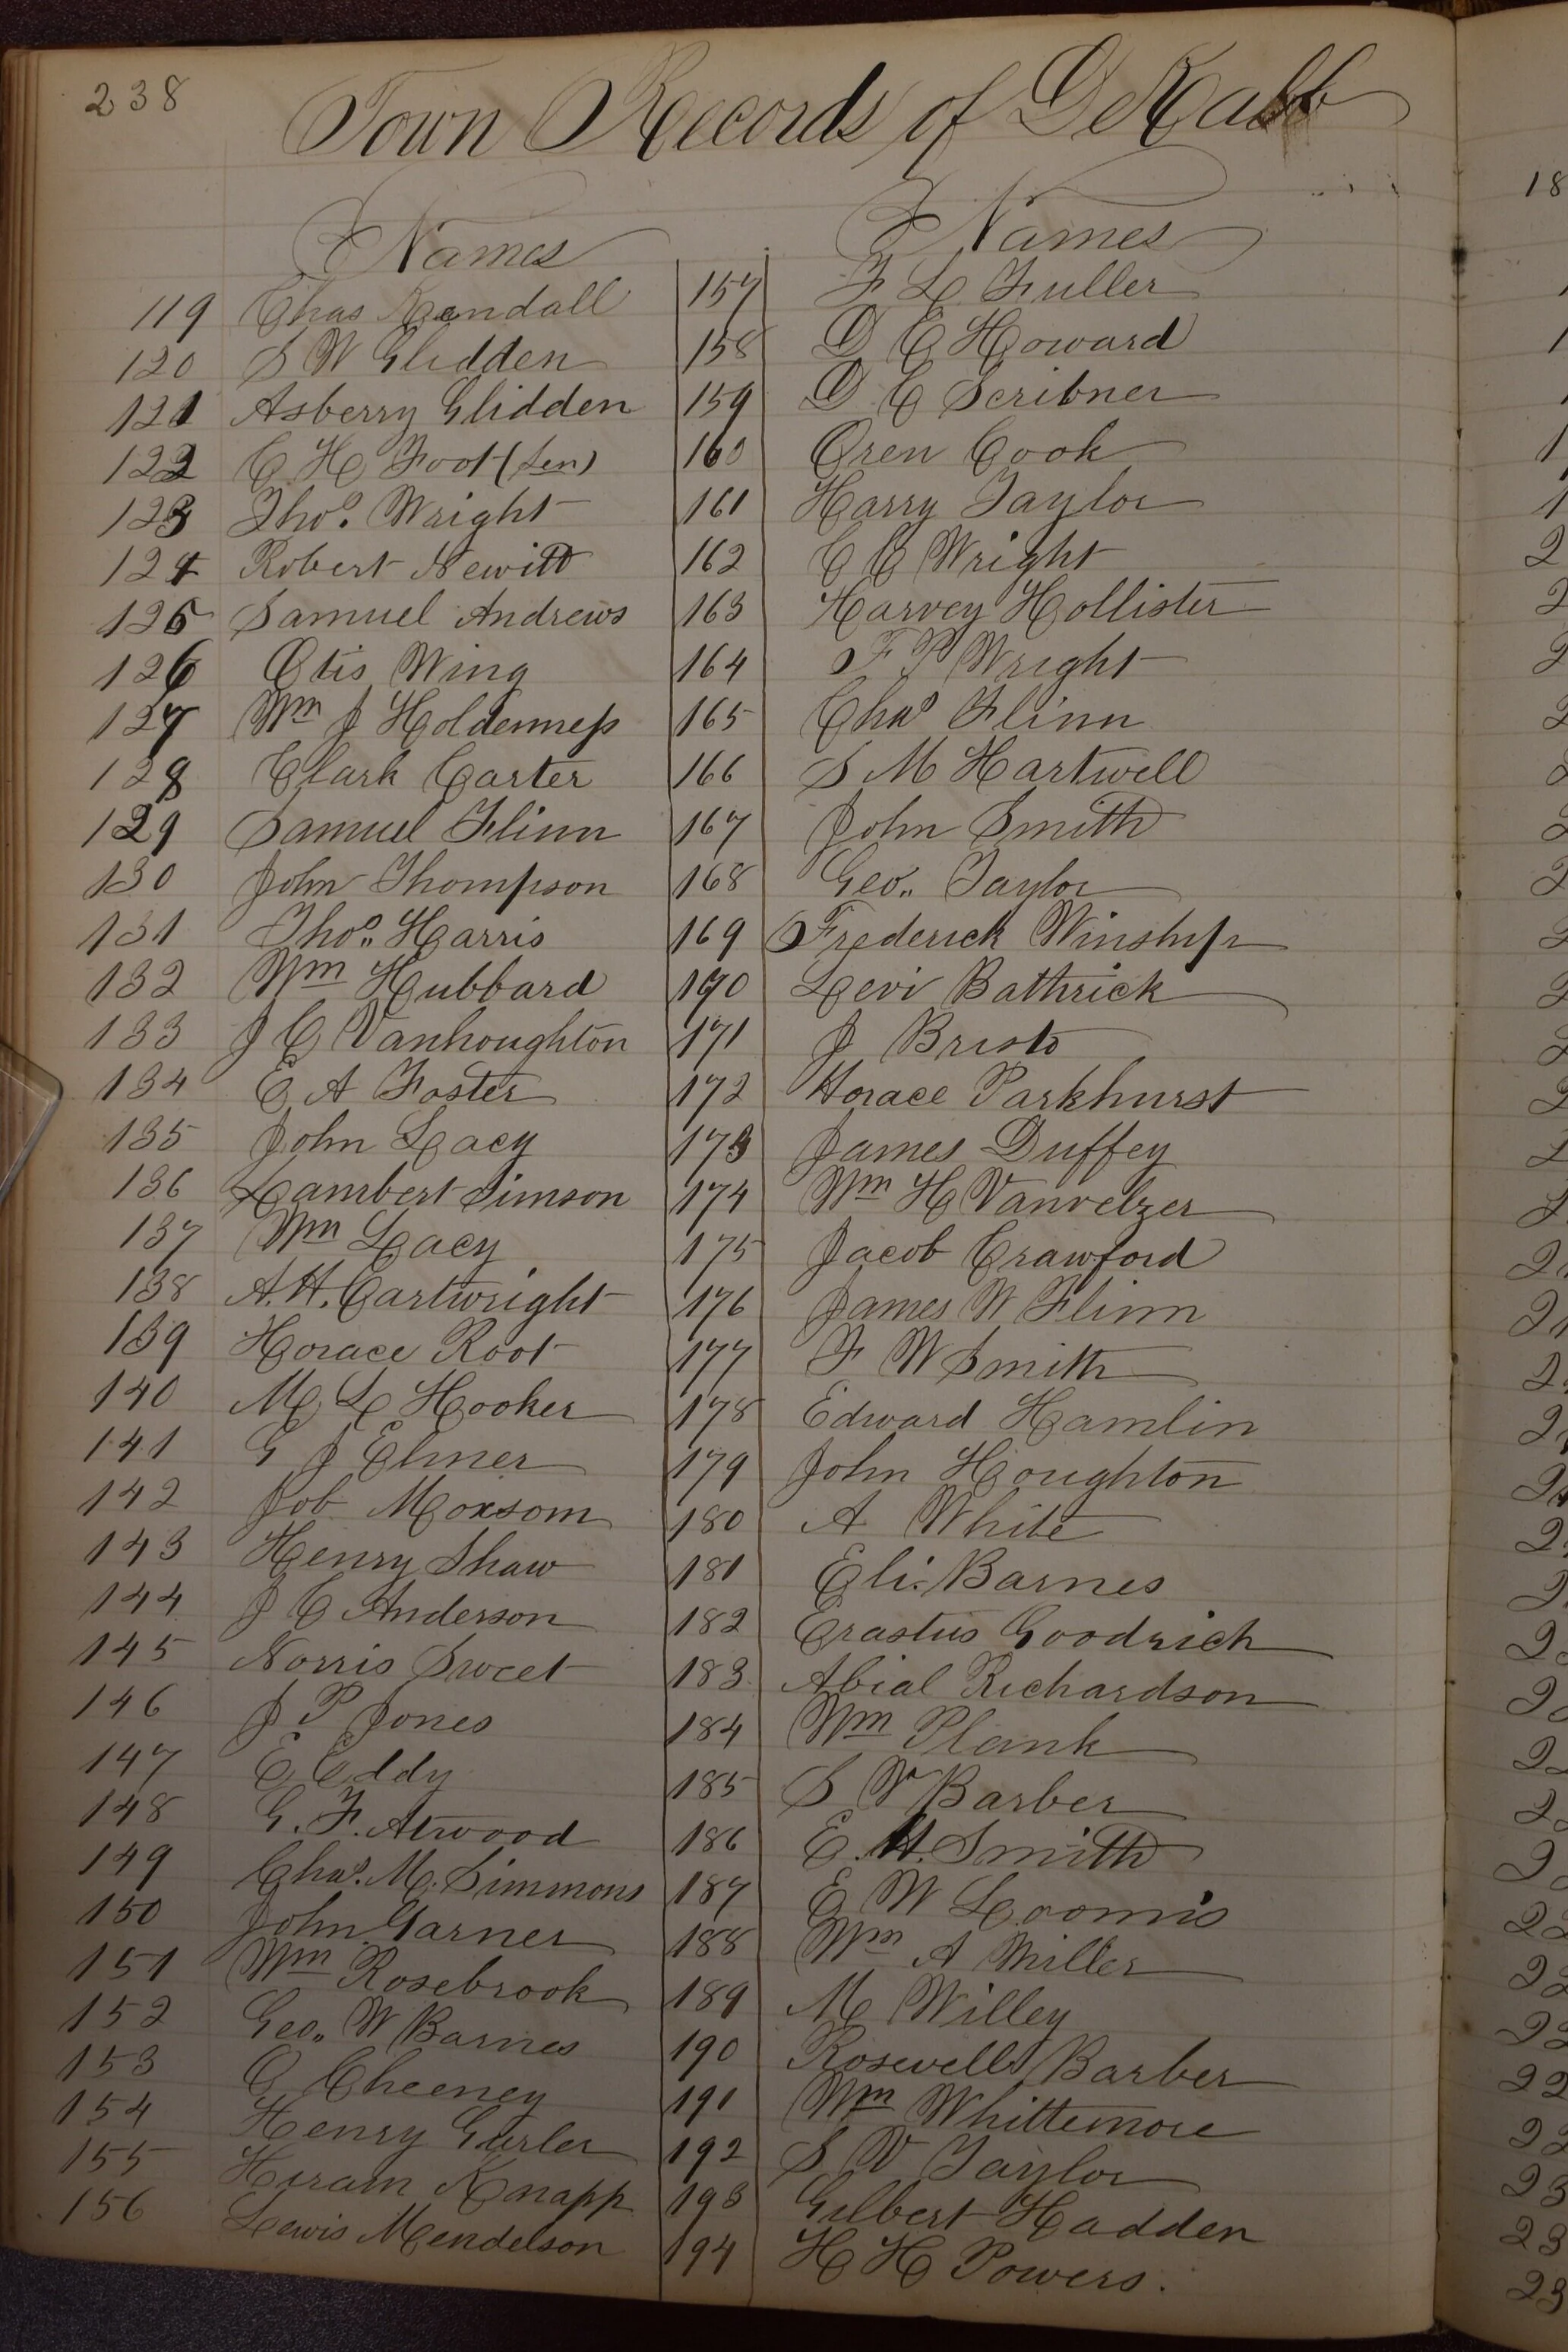 238
Town Records of DeKalb
Names
119 Chas Kendall
120 S W Glidden
121 Asberry Glidden
122 C H Foot (Sen)
123 Thos. Wright
124 Robert Newitt
125 Samuel Andrews
126 Otis Wing
127 Wm J Holderness
128 Clark Carter
129 Samuel Flinn
130 John Thompson
131 Thos. Harris
132 Wm Hubbard
133 J C Vanhoughton
134 E A Foster
135 John Lacy
136 Lambert Simson
137 Wm Lacy
138 A. H. Cartwright
139 Horace Root
140 M L Hooker
141 G J Elmer
142 Job Moxsom
143 Henry Shaw
144 J C Anderson
145 Norris Sweet
146 J P Jones
147 E Eddy
148 G. F. Atwood
149 Chas. M. Simmons
150 John Garner
151 Wm Rosebrook
152 Geo. W Barnes
153 O Cheeney
154 Henry Gurler
155 Hiram Knapp
156 Lewis Mendelson
Names
157 F L Fuller
158 D E Howard
159 D C Scribner
160 Oren Cook
161 Harry Taylor
162 C C Wright
163 Harvey Hollister
164 F P Wright
165 Chas Flinn
166 S M Hartwell
167 John Smith
168 Geo. Taylor
169 Frederick Winship
170 Levi Bathrick
171 J Bristo
172 Horace Parkhurst
173 James Duffey
174 Wm H Vanvelzer
175 Jacob Crawford
176 James W Flinn
177 F W Smith
178 Edward Hamlin
179 John Houghton
180 A White
181 Eli Barnes
182 Erastus Goodrich
183 Abial Richardson
184 Wm Plank
185 S V Barber
186 E. H. Smith
187 E W Loomis
188 Wm A Miller
189 M Willey
190 Rosewell Barber
191 Wm Whittemore
192 S V Taylor
193 Gilbert Hadden
194 H H Powers.